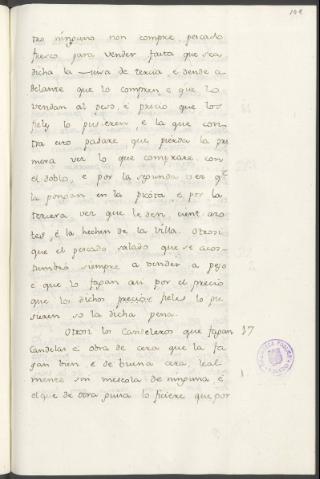 104
tro ninguno non compre pescado
fresco para vender fasta que sea
dicha la misa de tercia, e dende a-
delante que lo compren e que lo
vendan al peso, e precio que los
fieles lo pusieren, e la que con-
tra esto pasare que pierda la pri
mera vez lo que comprare con
el doblo, e por la segunda vez q.e
la pongan en la picota, e por la
tercera vez que le den cient azo-
tes, é la hechen de la villa. Otrosi
que el pescado salado que se acos-
tumbró siempre a vender a peso
e que lo fagan asi por el precio
que los dichos fieles lo pu
sieren so la dicha pena.
Otrosi los Candeleros que fagan 37
Candelas é obra de cera que la fa
gan bien, e de buena cera, leal
mente sin mescola de ninguna, é
el que de otra guisa lo ficiere que por